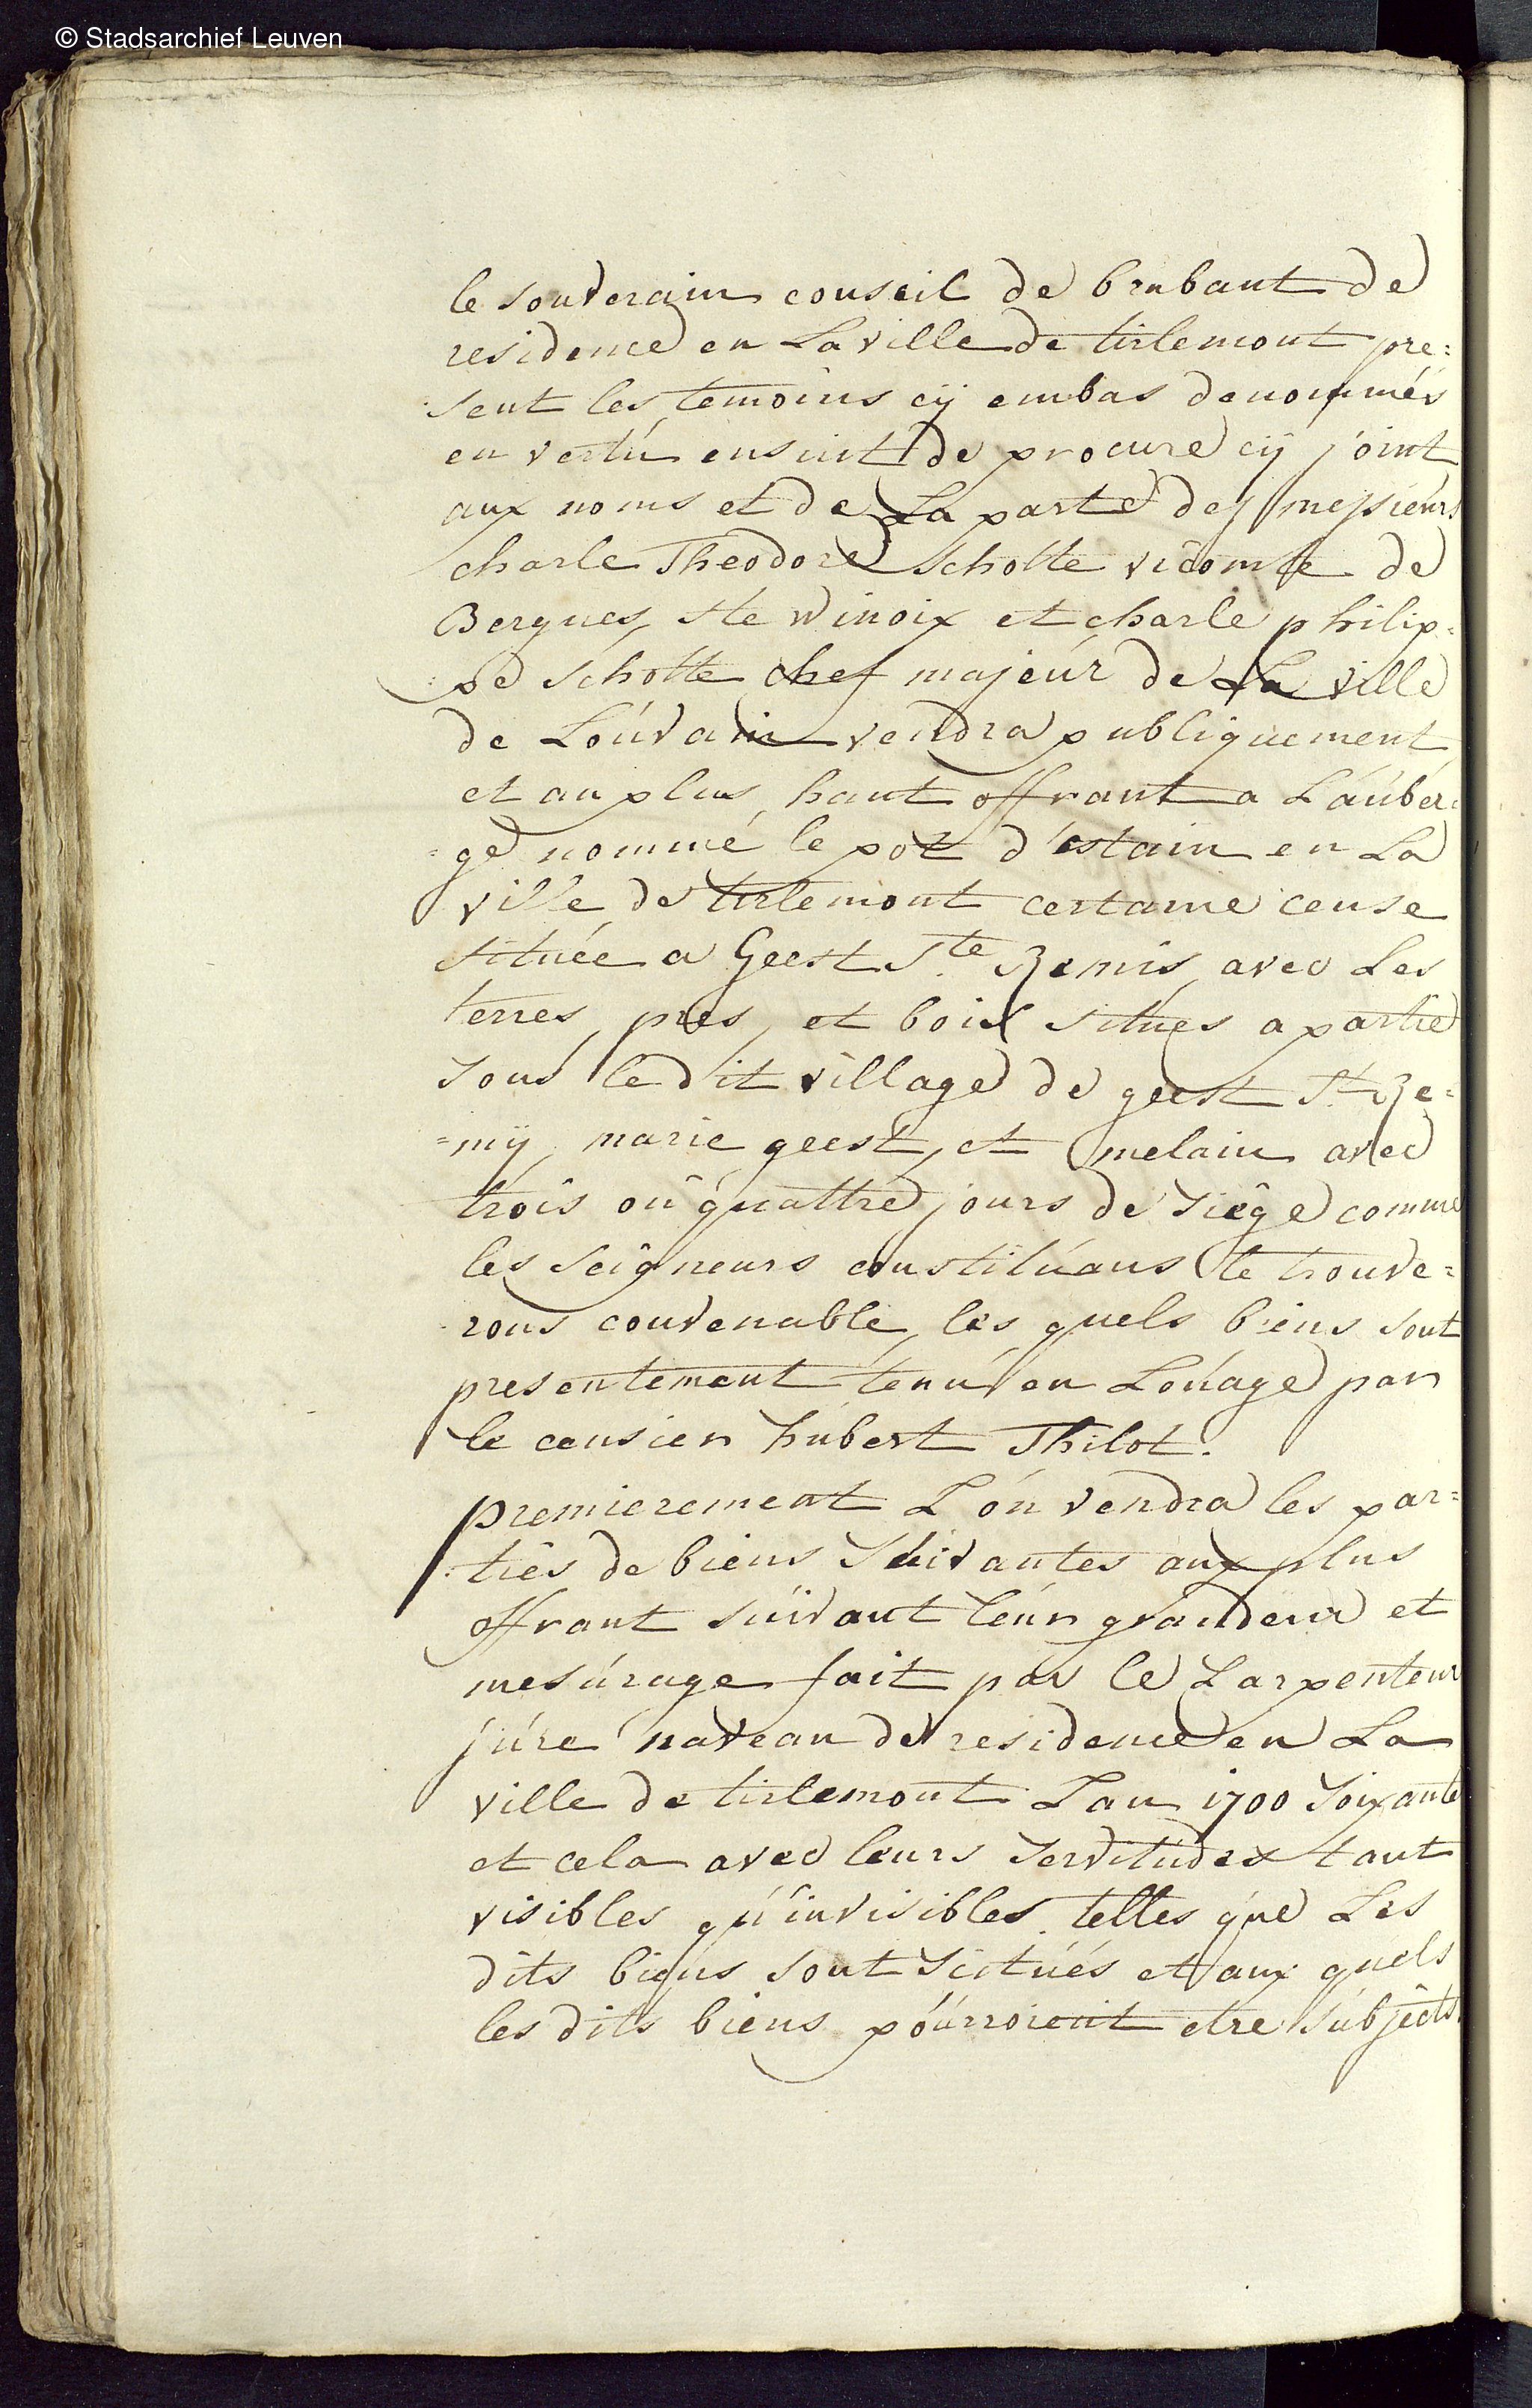 © Stadsarchief Leuven
le souverain conseil de brabant de
residence en La ville de tirlemont pre=
sent les temoins cÿ embas denommés
en vertú ensuit de procure cÿ joint
aux noms et de La parte des messieurs
charle Theodore Scholte vicomte de
Bergues Ste Winoix et charle philip=
=pe Scholte chef majeúr de La ville
de Loúvain vendra publiquement
et au plus haut offrant a L'aúber=
=ge nommé le pot d'estain en La
ville de tirlemont certaine cense
située a Geest Ste Remis, avec Les
terres, pres, et boix situes a partie
sous le dit village de geest St Re=
=mÿ, marie geest, et melain avec
trois oú quattre jours de siége comme
les Seigneurs constitúans le trouve=
rons convenable, les quels biens sont
presentement tenú en Loúage par
le censier húbert Thilot.
premierement L'on vendra les par=
ties de biens suivantes aux plus
offrant suivant leúr grandeur et
mesúrage fait par le Larpenteur
júré naveau de residence en La
ville de tirlemont L'an 1700 soixante
et cela avec leurs servitudes tant
visibles qú'invisibles telles que Les
dits biens sont scitués et aux quels
les dits biens poúrroient etre súbjects.